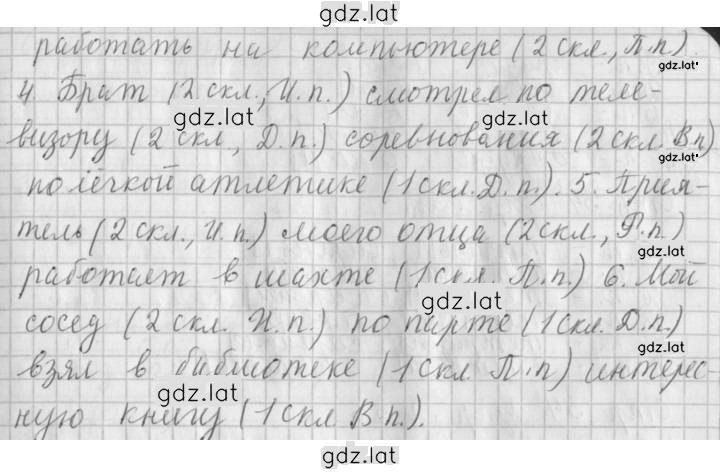 gdz.lat
работать на компьютере (2 скл., П.п)
gdz.lat
4. Брат (2 скл., И.п.) смотрел по теле-
gdz.lat
визору (2 скл., Д.п.) соревнования (2 скл. В.п)
gdz.lat
по лёгкой атлетике (1 скл. Д.п.). 5. Прия-
тель (2 скл., И.п.) моего отца (2 скл., Р.п.)
gdz.lat
работает в шахте (1 скл. П.п.) 6. Мой
gdz.lat
сосед (2 скл. И.п.) по парте (1 скл. Д.п.)
взял в библиотеке (1 скл. П.п) интерес-
gdz.lat
ную книгу (1 скл В.п.).
gdz.lat